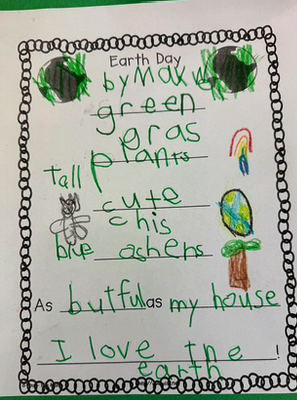 Earth Day
by Max
green
gras
tall plants
cute
chis
blue oshens
As butful as my house
I love the !
earth